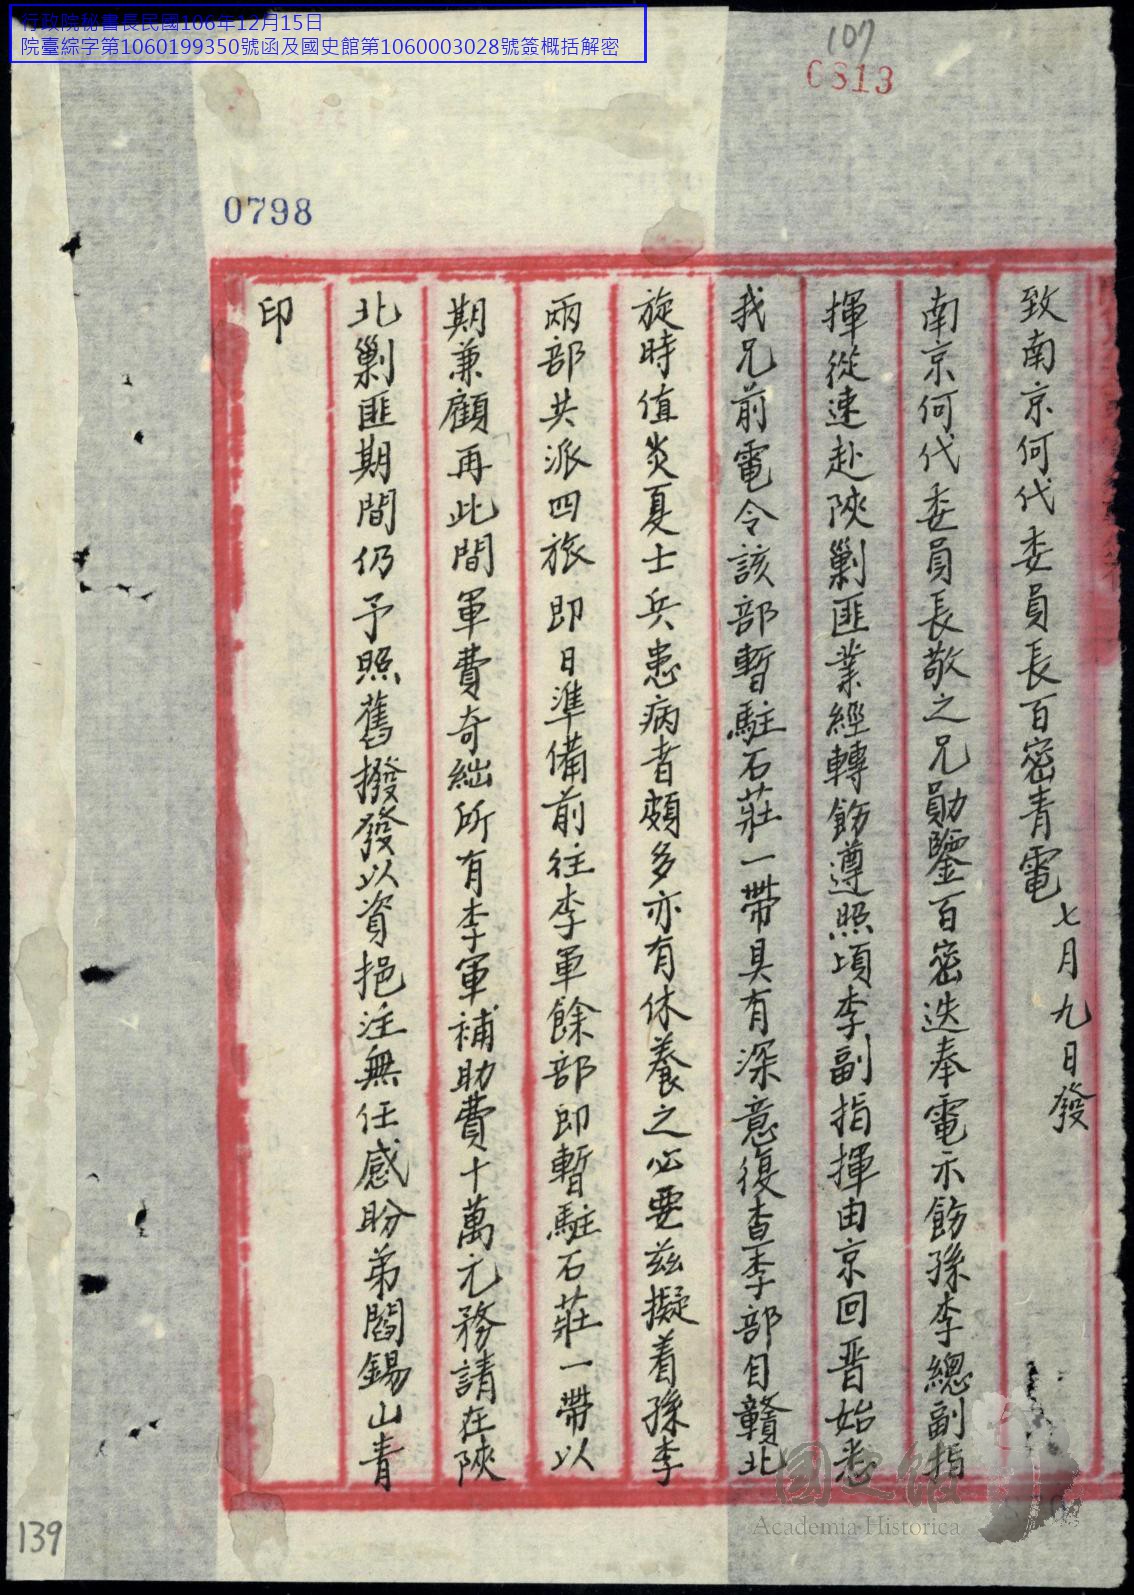 行政院秘書長民國106年12月15日
院臺綜字第1060199350號函及國史館第1060003028號簽概括解密
107
6813
0798
致南京何代委員長百密青電七月九日發
南京何代委員長敬之兄勛鑒百密迭奉電示飭孫李總副指
揮從速赴陝剿匪業經轉飭遵照頃李副指揮由京回晋始悉
我兄前電令該部暫駐石莊一帶具有深意復查李部自贛北
旋時值炎夏士兵患病者頗多亦有休養之必要茲擬着孫李
兩部共派四旅即日準備前往李軍餘部即暫駐石莊一帶以
期兼顧再此間軍費奇絀所有李軍補助費十萬元務請在陝
北剿匪期間仍予照舊撥發以資挹注無任感盼弟閻錫山青
印
139
國史館
Academia Historica